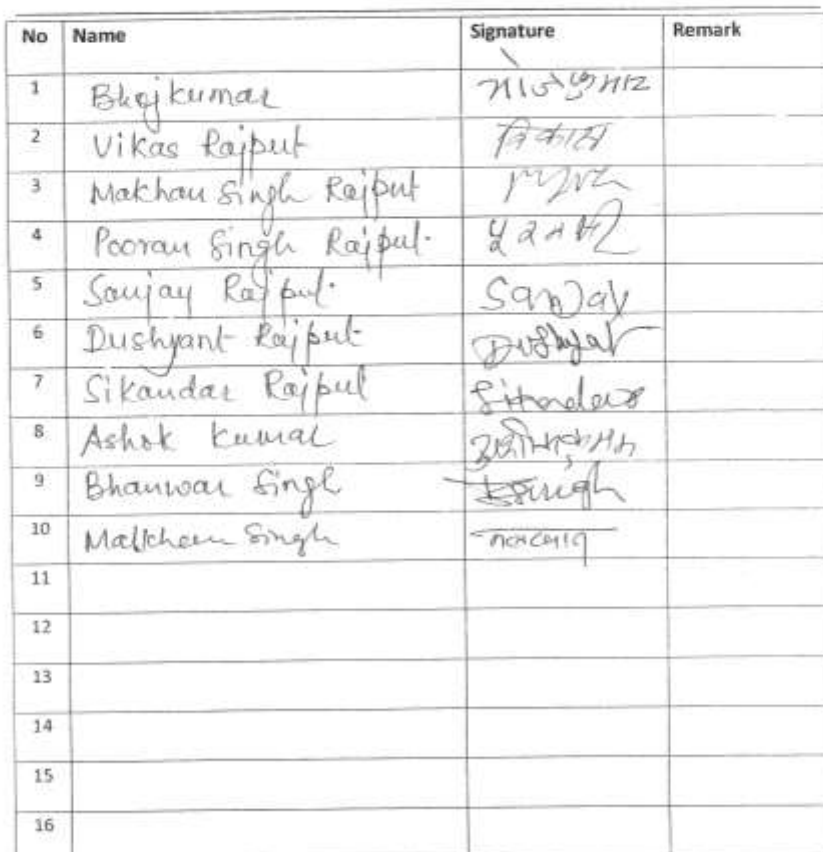 No Name Signature Remark
1 Bhojkumar भोजकुमार
2 Vikas Rajput विकास
3 Makhan Singh Rajput
4 Pooran Singh Rajput.
5 Sanjay Rajput. Sanjay
6 Dushyant Rajput Dushyat
7 Sikandar Rajput
8 Ashok Kumar
9 Bhanwar Singh
10 Malkhan Singh
11
12
13
14
15
16